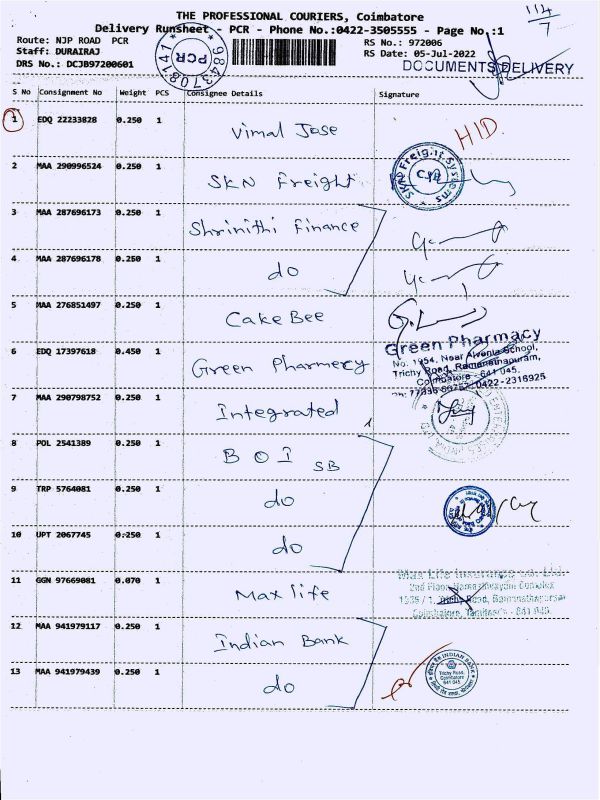 THE PROFESSIONAL COURIERS, Coimbatore
114/7
Delivery Runsheet - PCR - Phone No.:0422-3505555 - Page No.:1
Route: NJP ROAD PCR
RS No.: 972006
Staff: DURAIRAJ
RS Date: 05-Jul-2022
DRS No.: DCJB97200601
DOCUMENTS DELIVERY
* PCR * 9843708141
S No Consignment No Weight PCS Consignee Details Signature
1 EDQ 22233828 0.250 1 Vimal Jose HID
2 MAA 290996524 0.250 1 SKN Freight
SKN Freight Systems
3 MAA 287696173 0.250 1 Shrinithi Finance
4 MAA 287696178 0.250 1 do
5 MAA 276851497 0.250 1 CakeBee
6 EDQ 17397618 0.450 1 Green Pharmecy
Green Pharmacy
No. 1954, Near Alvenia School,
Trichy Road, Ramanathapuram,
Coimbatore - 641 045.
0422-2316925
7 MAA 290798752 0.250 1 Integrated
8 POL 2541389 0.250 1 BOI SB
9 TRP 5764081 0.250 1 do
10 UPT 2067745 0.250 1 do
11 GGN 97669081 0.070 1 Max life
Max Life Insurance Co. Ltd.
2nd Floor, Complex
Trichy Road, Ramanathapuram
Coimbatore, - 641 045.
12 MAA 941979117 0.250 1 Indian Bank
13 MAA 941979439 0.250 1 do
INDIAN BANK
Trichy Road,
Coimbatore
641 045